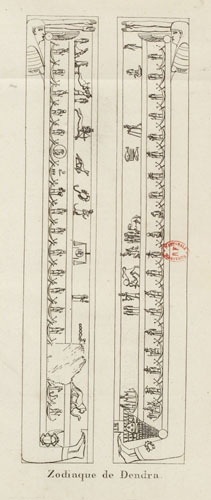 Zodiaque de Dendra.